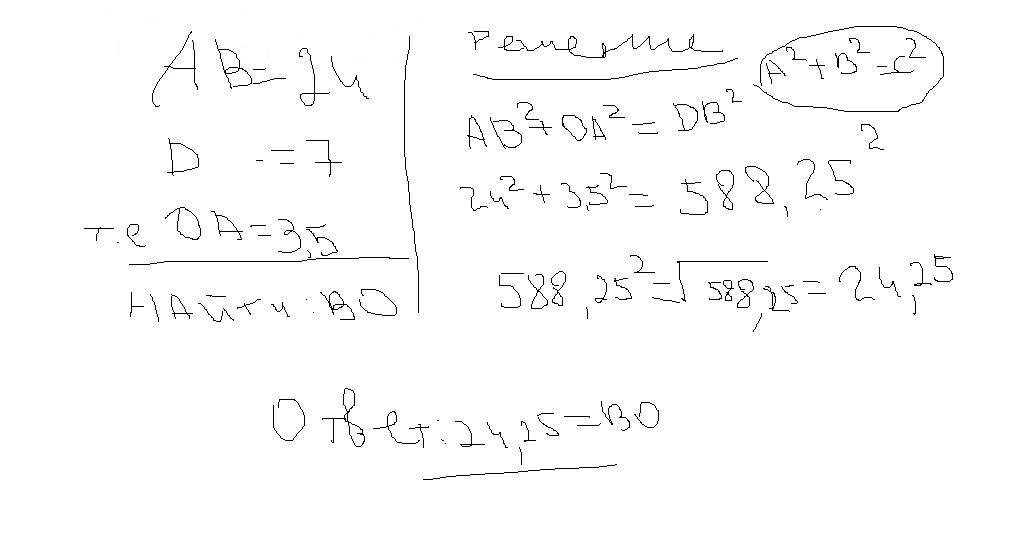 AB=24
D .=7
т.е OA=3,5
НАйти:BO
Решение
A²+B²=c²
AB²+OA²=DB²
24²+3,5²=588,25²
588,25²=√588,25=24,25
Ответ:24,25=BO